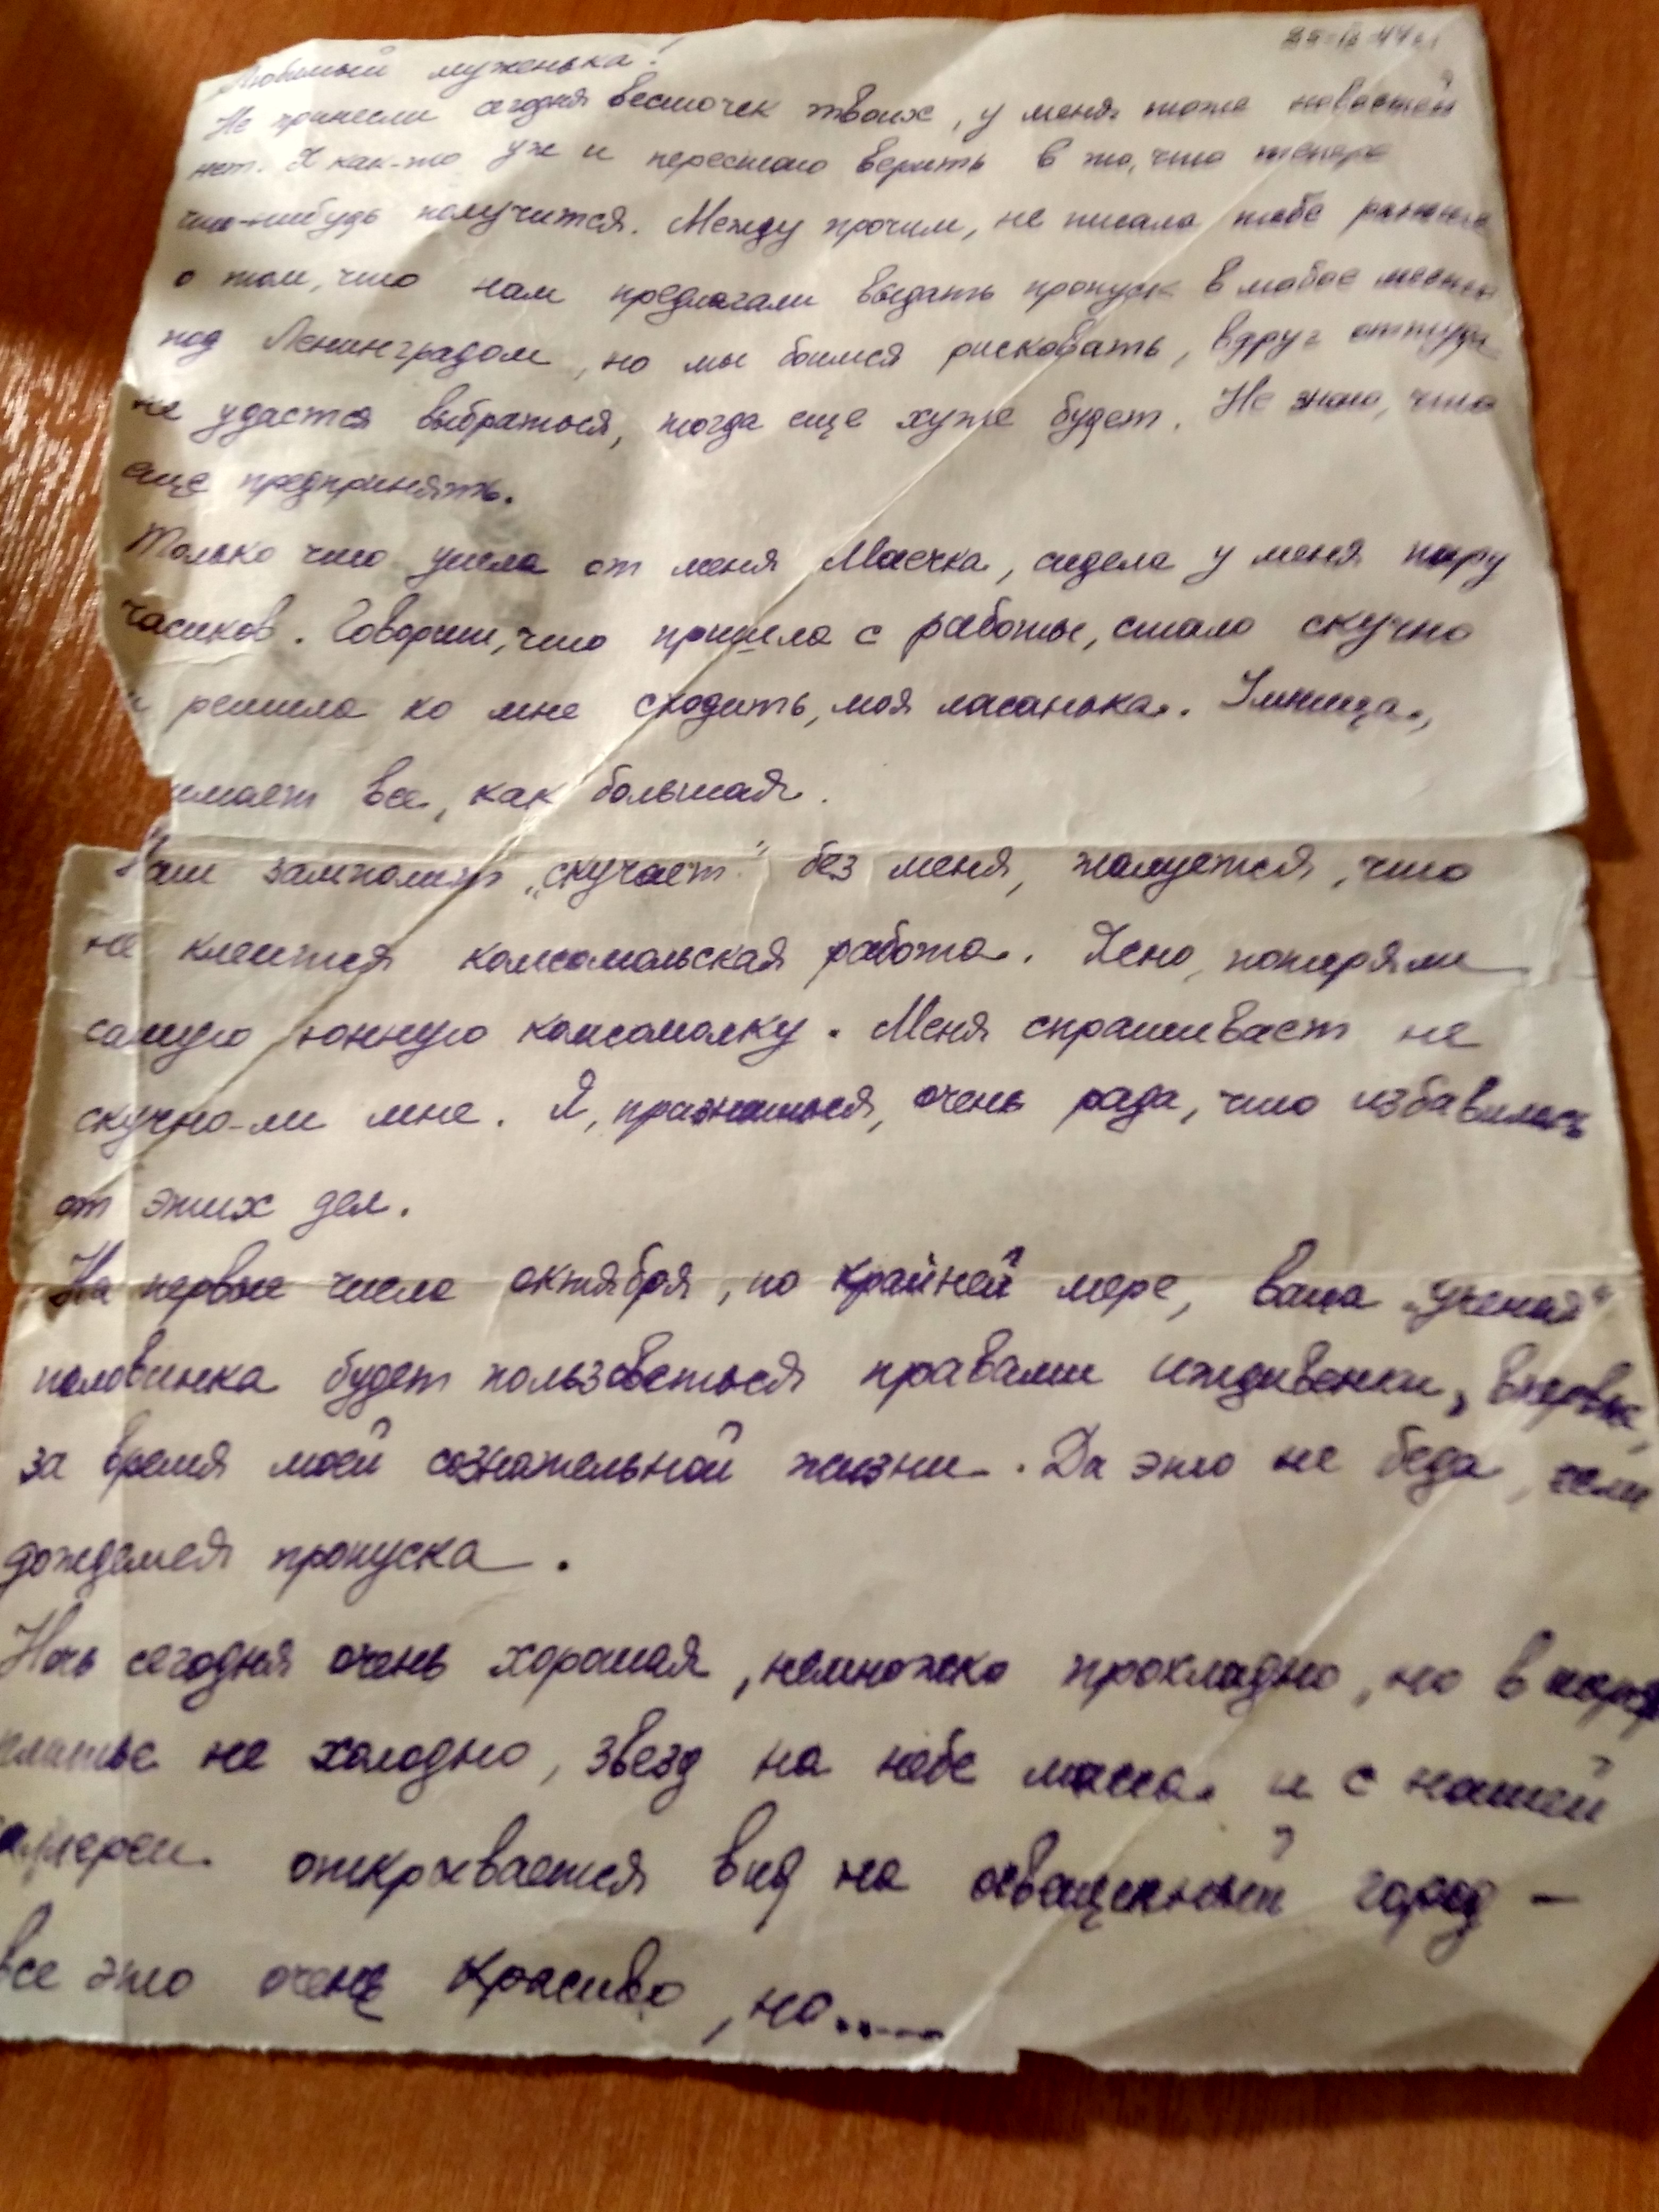 Любимый муженька!
Не принесли сегодня весточек твоих, у меня тоже новостей
нет. Я как-то уж и перестаю верить в то, что теперь
что-нибудь получится. Между прочим, не писала тебе раньше
о том, что нам предлагали выдать пропуск в любое место
под Ленинградом, но мы боимся рисковать, вдруг оттуда
не удастся выбраться, тогда еще хуже будет. Не знаю, что
еще предпринять.
Только что ушла от меня Маечка, сидела у меня пару
часиков. Говорит, что пришла с работы, стало скучно
и решила ко мне сходить, моя ласанька. Умница,
имает все, как большая.
Наш замполит „скучает" без меня, жалуется, что
не клеится комсомольская работа. Ясно, потеряли
самую юнную комсомолку. Меня спрашивает не
скучно-ли мне. Я, признаться, очень рада, что избавилась
от этих дел.
На первые числа октября, по крайней мере, ваша „ученая"
половинка будет пользоваться правами иждивенки, впервые
за время моей сознательной жизни. Да это не беда, если
дождемся пропуска.
Ночь сегодня очень хорошая, немножко прохладно, но в
платье не холодно, звезд на небе масса и с нашей
открывается вид на освещенный город —
все это очень красиво, но.....